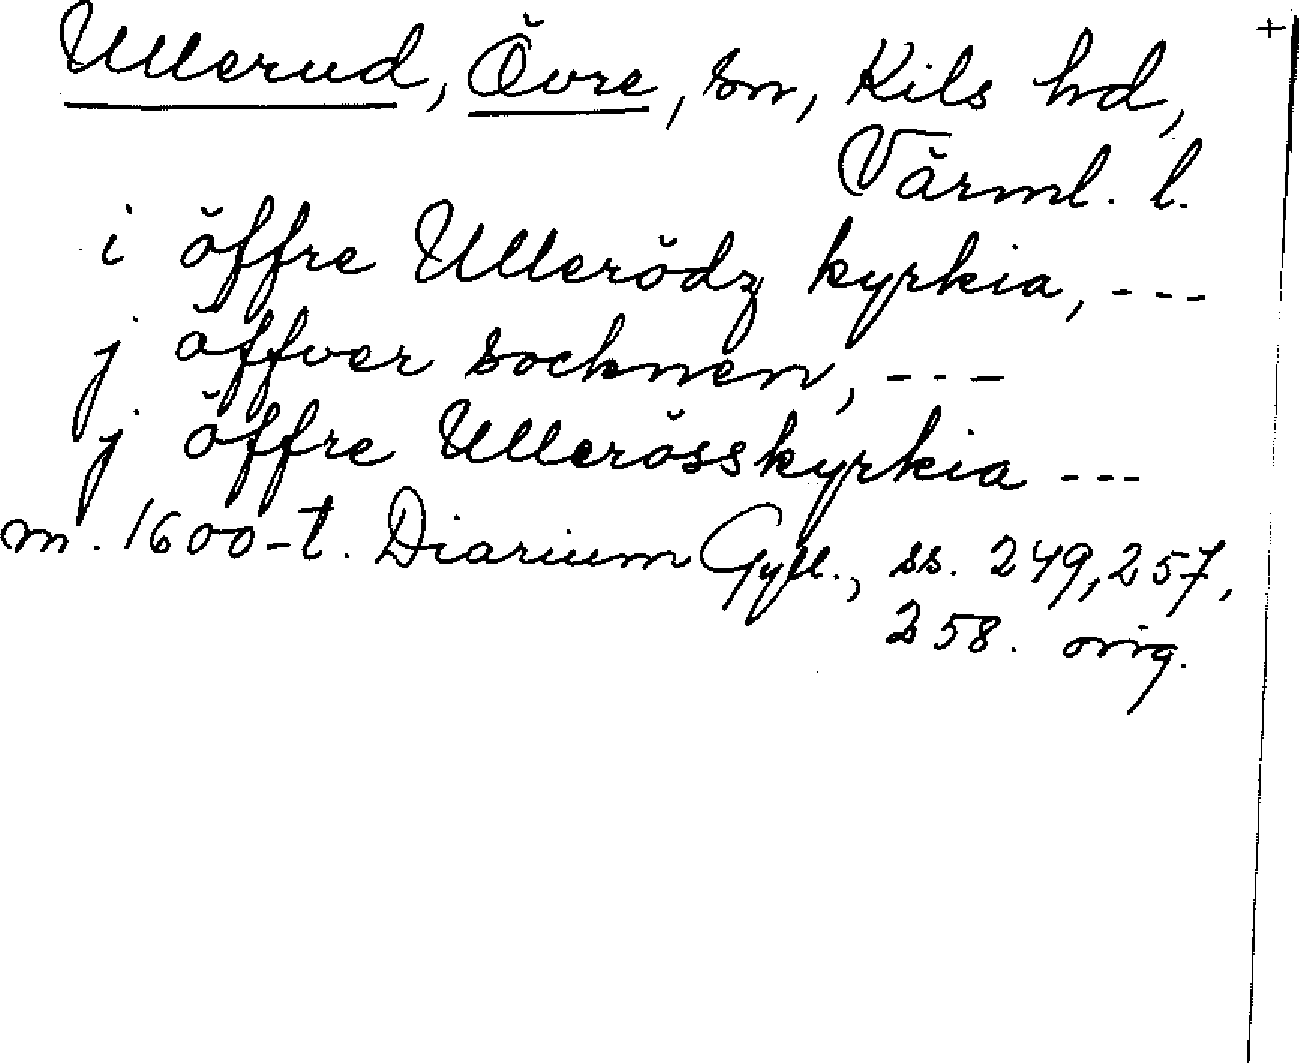 +
Ullerud, Övre, sn, Kils hd,
Värml. l.
i öffre Ullerödz kyrkia, ---
j öffver socknen, ---
j öffre Ullerösskyrkia ---
m. 1600-t. Diarium Gyll., ss. 249, 257,
258. orig.